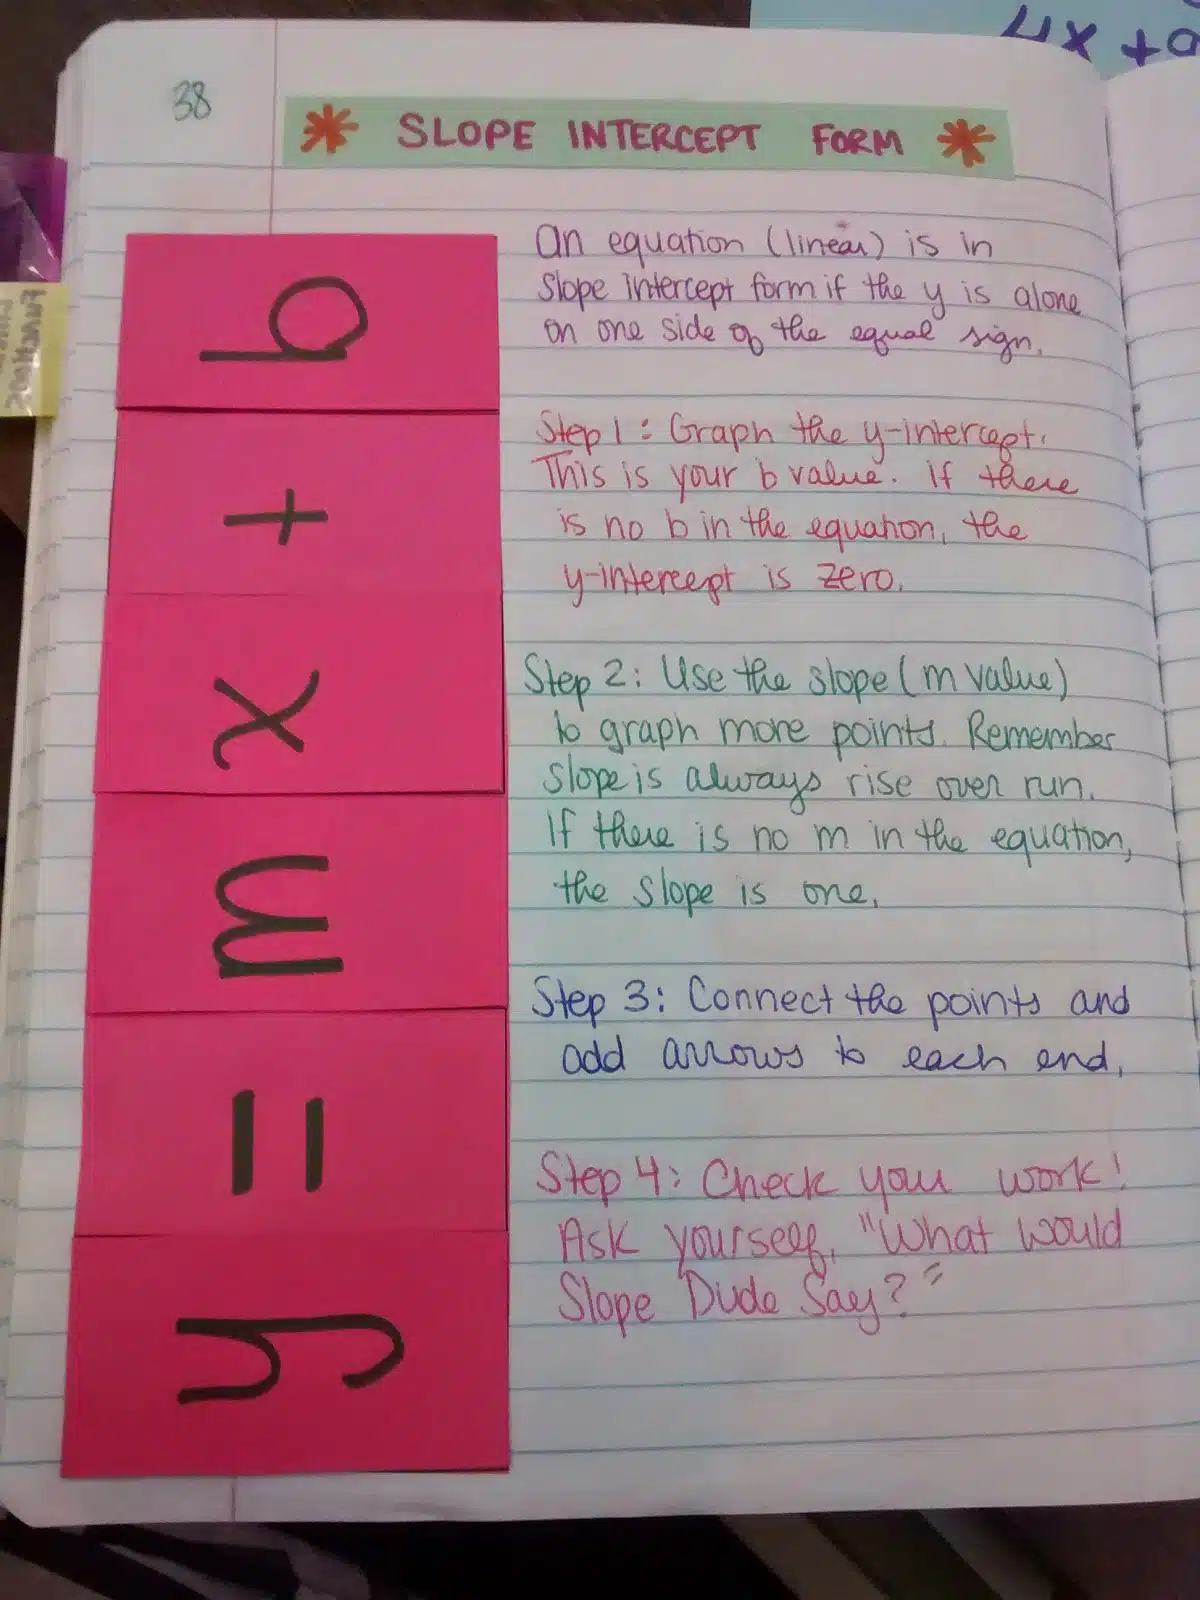 4x + 9
38
* SLOPE INTERCEPT FORM *
y = m x + b
An equation (linear) is in
slope intercept form if the y is alone
on one side of the equal sign.
Step 1: Graph the y-intercept.
This is your b value. If there
is no b in the equation, the
y-intercept is zero.
Step 2: Use the slope (m value)
to graph more points. Remember
slope is always rise over run.
If there is no m in the equation,
the slope is one.
Step 3: Connect the points and
add arrows to each end.
Step 4: Check your work!
Ask yourself, "What would
Slope Dude Say?"